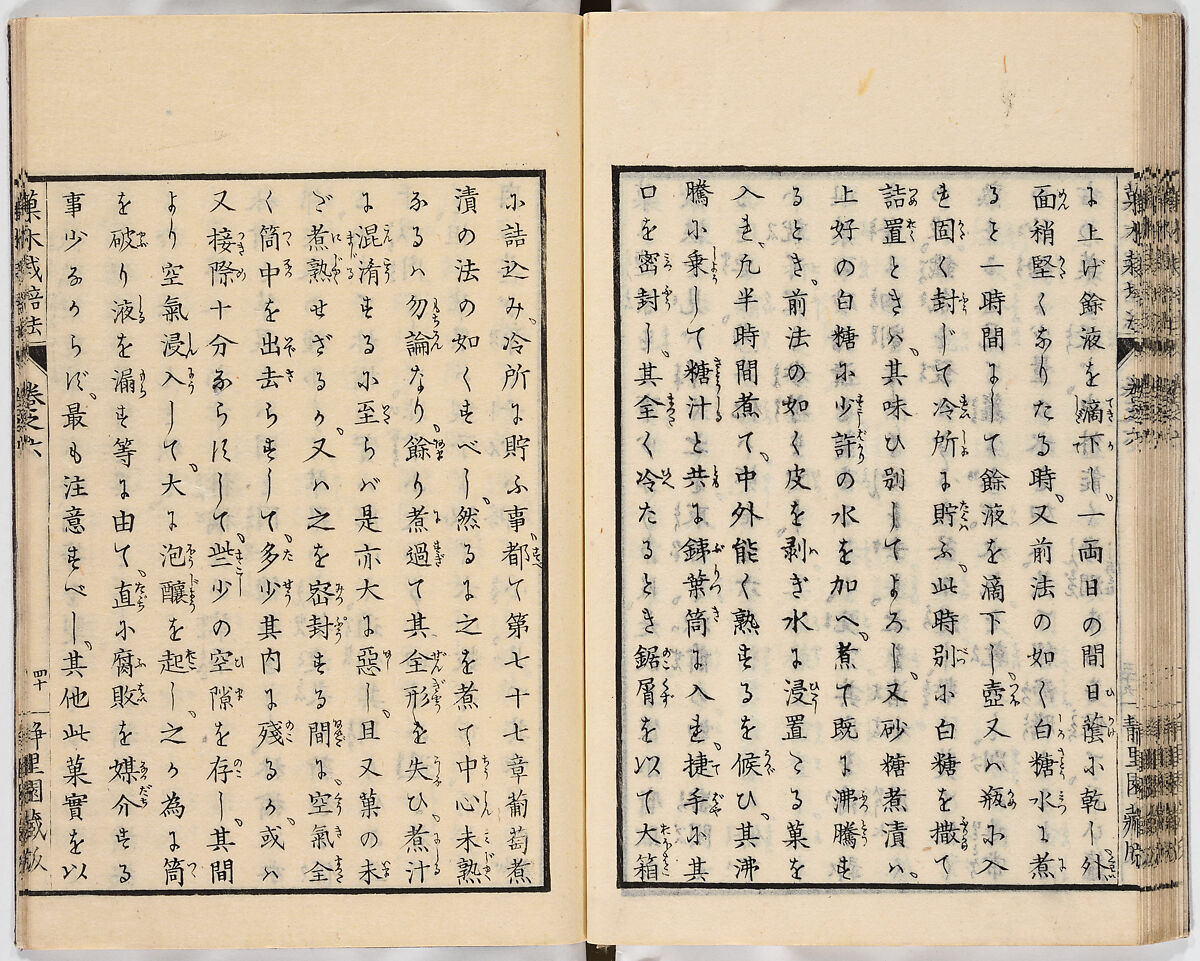 に上げ餘液を滴下し、一両日の間日蔭に乾し外
面稍堅くなりたる時、又前法の如く白糖水に煮
ると一時間にして餘液を滴下し、壺又ハ瓶に入
れ固く封じて冷所に貯ふ、此時別に白糖を撒て
詰置ときハ、其味ひ別してよろし、又砂糖煮漬ハ、
上好の白糖に少許の水を加へ、煮て既に沸騰す
るとき、前法の如く皮を剥ぎ水に浸置たる菓を
入れ、凡半時間煮て、中外能く熟するを候ひ、其沸
騰に乗して糖汁と共に銕葉筒に入れ、捷手に其
口を密封し、其全く冷たるとき鋸屑を以て大箱
菓木栽培法 巻之六 静里園藏版
に詰込み、冷所に貯ふ事、都て第七十七章葡萄煮
漬の法の如くすべし、然るに之を煮て中心未熟
なるハ勿論なり、餘り煮過て其全形を失ひ、煮汁
に混淆するに至らバ是亦大に惡し、且又菓の未
ざ煮熟せざるか、又ハ之を密封する間に、空氣全
く筒中を出去らずして、多少其内に殘るか、或ハ
又接際十分ならずして、些少の空隙を存し、其間
より空氣浸入して、大に泡釀を起し、之か為に筒
を破り液を漏す等に由て、直に腐敗を媒介する
事少なからず、最も注意すべし、其他此菓實を以
菓木栽培法 巻之六 四十 静里園藏版